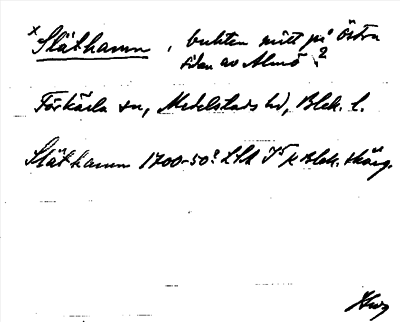 x Släthamn, bukten mitt på östra
sidan av Almö ?
Förkärla sn, Medelstads hd, Blek. l.
Släthamn 1700-50? LSA Blek. skärg.